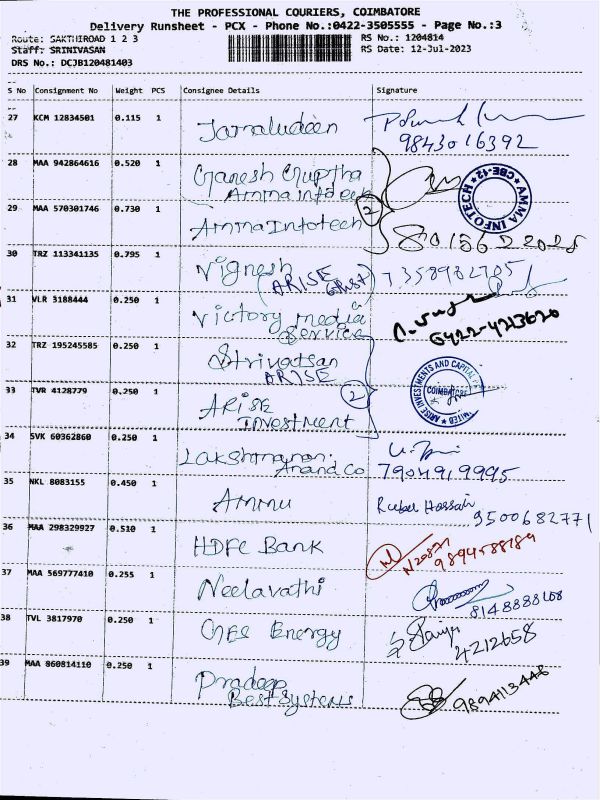 THE PROFESSIONAL COURIERS, COIMBATORE
Delivery Runsheet - PCX - Phone No.:0422-3505555 - Page No.:3
Route: SAKTHIROAD 1 2 3 RS No.: 1204814
Staff: SRINIVASAN RS Date: 12-Jul-2023
DRS No.: DCJB120481403
S No Consignment No Weight PCS Consignee Details Signature
27 KCM 12834501 0.115 1 Jamaludeen
9843016392
28 MAA 942864616 0.520 1 Ganesh Guptha
Amma infotech
AMMA INFOTECH CBE-12
29 MAA 570301746 0.730 1 Amma Infotech 2
30 TRZ 113341135 0.795 1 Vignesh
ARISE 7358982705
31 VLR 3188444 0.250 1 Victory media
Service 0422-4213620
32 TRZ 195245585 0.250 1 Srivatsan
ARISE
33 TVR 4128779 0.250 1 ARISE 2
Investment
ARISE INVESTMENTS AND CAPITAL LIMITED COIMBATORE
34 SVK 60362860 0.250 1 Lakshmanan
Anand Co 7904919995
35 NKL 8083155 0.450 1 Ammu Rubel Hossain
9500682771
36 MAA 298329927 0.510 1 HDFC Bank
37 MAA 569777410 0.255 1 Neelavathi
38 TVL 3817970 0.250 1 Energy
4212658
39 MAA 860814110 0.250 1 Pradeep
Best Systems